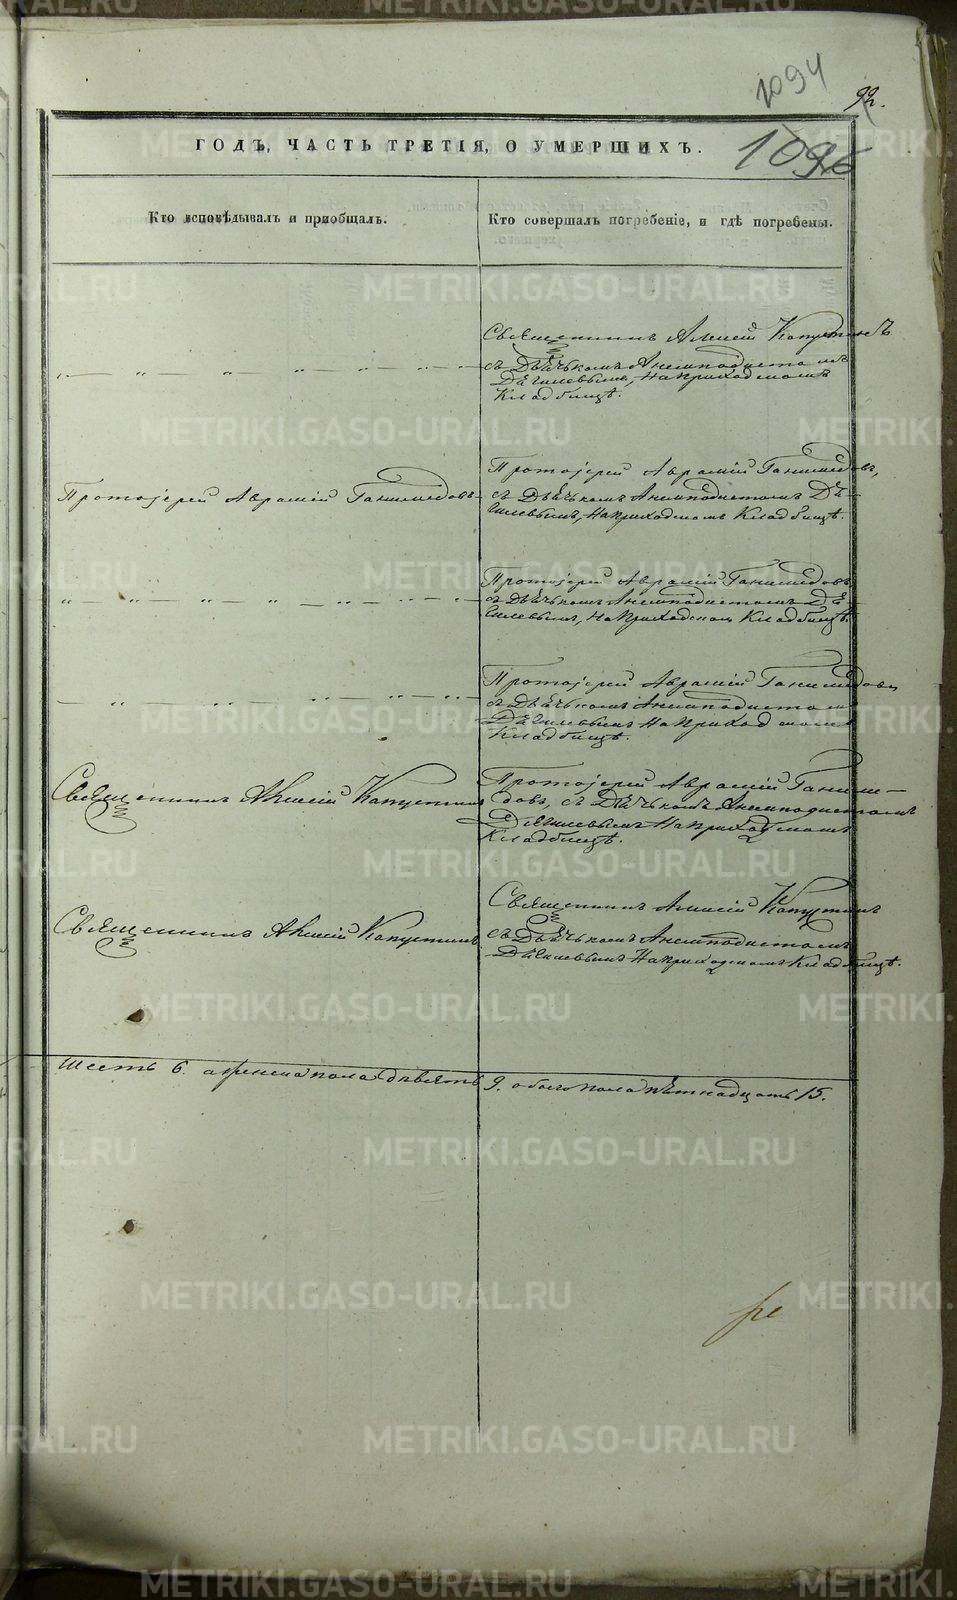 1094
92.
ГОДЪ, ЧАСТЬ ТРЕТІЯ, О УМЕРШИХЪ.
1096
Кто исповѣдывалъ и пріобщалъ.
Кто совершалъ погребеніе, и гдѣ погребены.
Священникъ Алексій Капустинъ
съ Дьячькомъ Анемподистомъ
Дягилевымъ, на приходскомъ
Кладбищѣ.
Протоіерей Авраамій Ганимедовъ
Протоіерей Авраамій Ганимедовъ,
съ Дьячькомъ Анемподистомъ Дя-
гилевымъ, на приходскомъ Кладбищѣ.
Протоіерей Авраамій Ганимедовъ
съ Дьячькомъ Анемподистомъ Дя-
гилевымъ, на приходскомъ Кладбищѣ.
Протоіерей Авраамій Ганимедовъ
съ Дьячькомъ Анемподистомъ
Дягилевымъ на приходскомъ
Кладбищѣ.
Священникъ Алексій Капустинъ
Протоіерей Авраамій Ганиме-
довъ, съ Дьячькомъ Анемподистомъ
Дягилевымъ на приходскомъ
Кладбищѣ.
Священникъ Алексій Капустинъ
Священникъ Алексій Капустинъ
съ Дьячькомъ Анемподистомъ
Дягилевымъ на приходскомъ Кладбищѣ.
Шесть 6. а женска пола девять 9. обоего пола пятнадцать 15.
METRIKI.GASO-URAL.RU